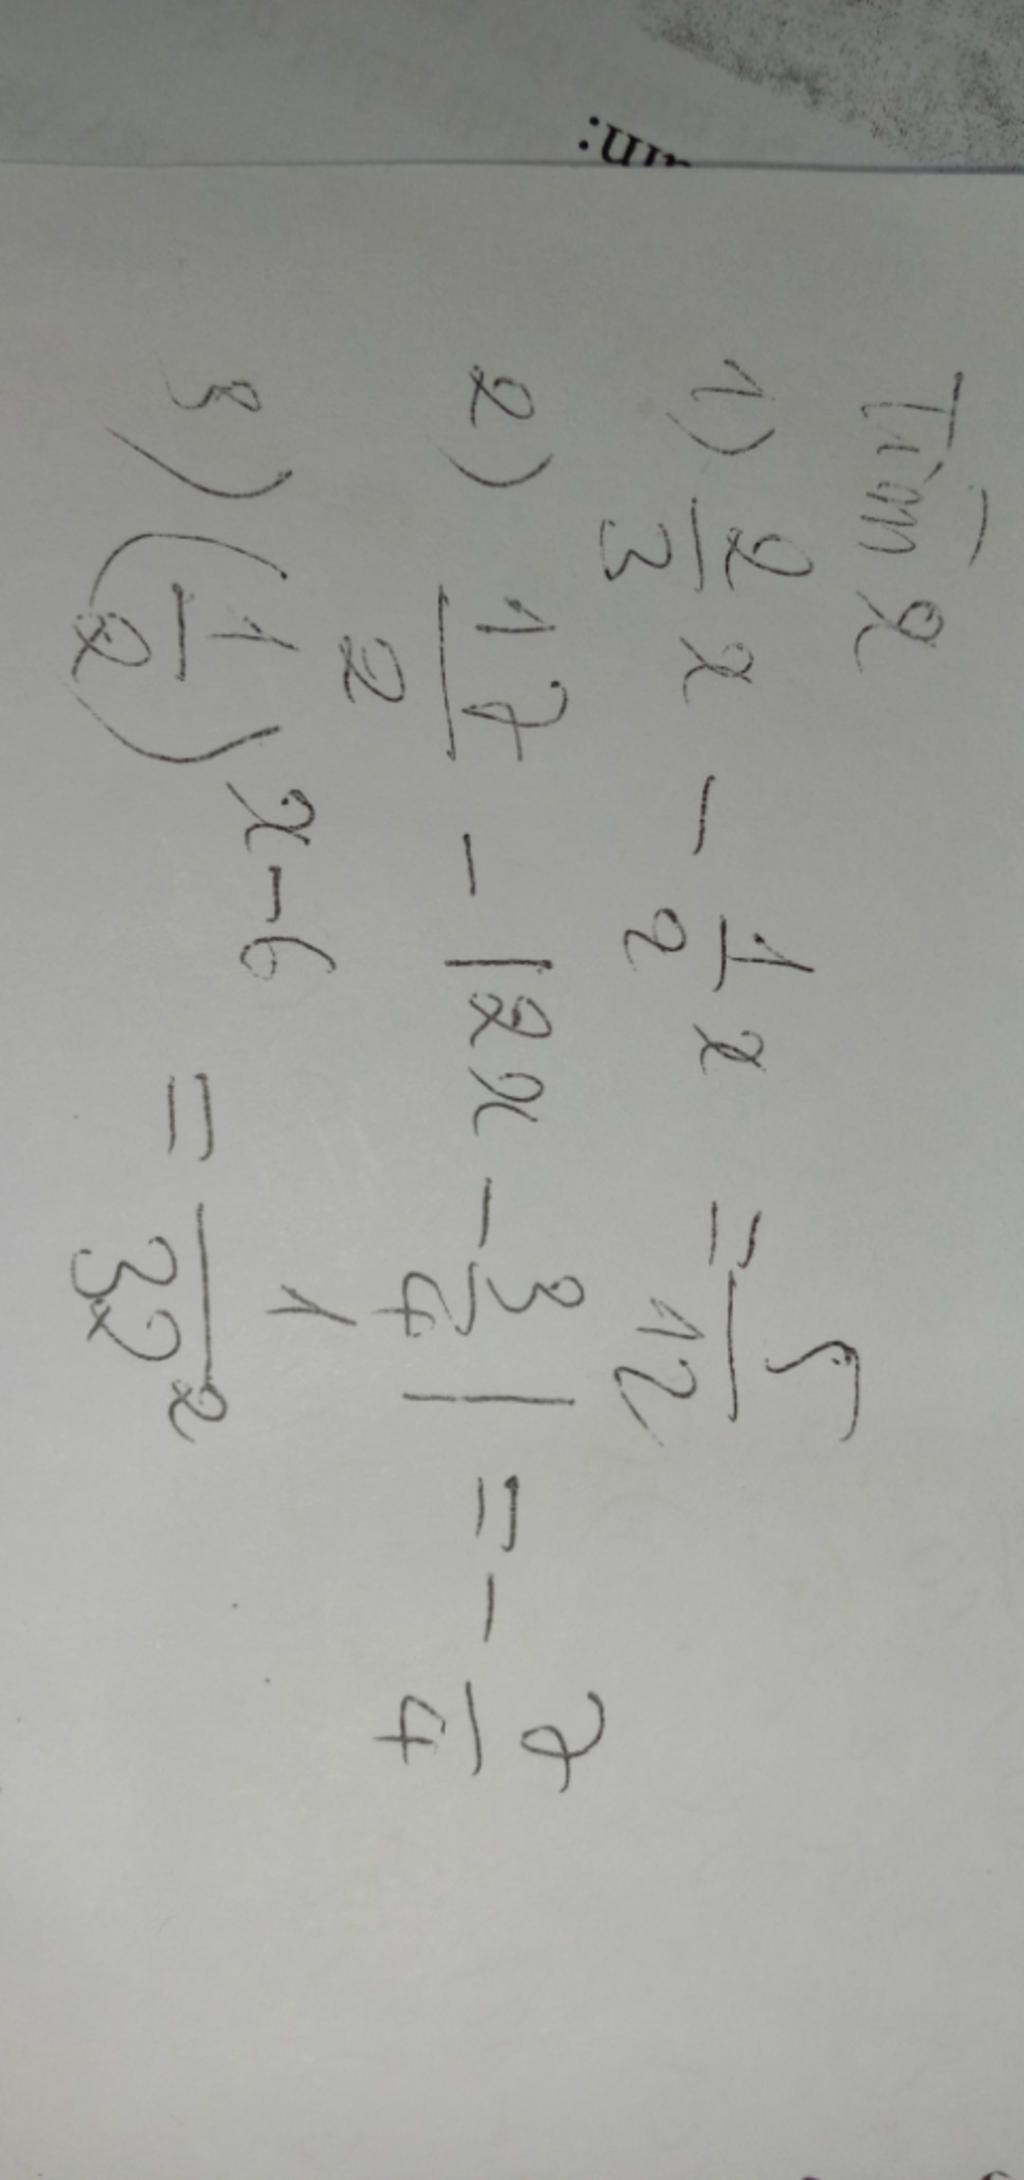 Tìm x
1) 2/3 x - 1/2 x = 5/12
2) 17/2 - |2x - 3/4| = - 7/4
3) (1/2)^x-6 = 1/32^2